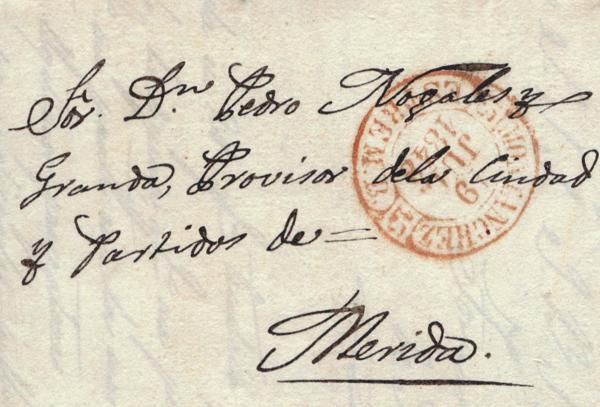 Sor. Dn. Pedro Nogales y
Granda, Provisor dela Ciudad
y Partidos de =
Merida.
9
JUL
EXTREM